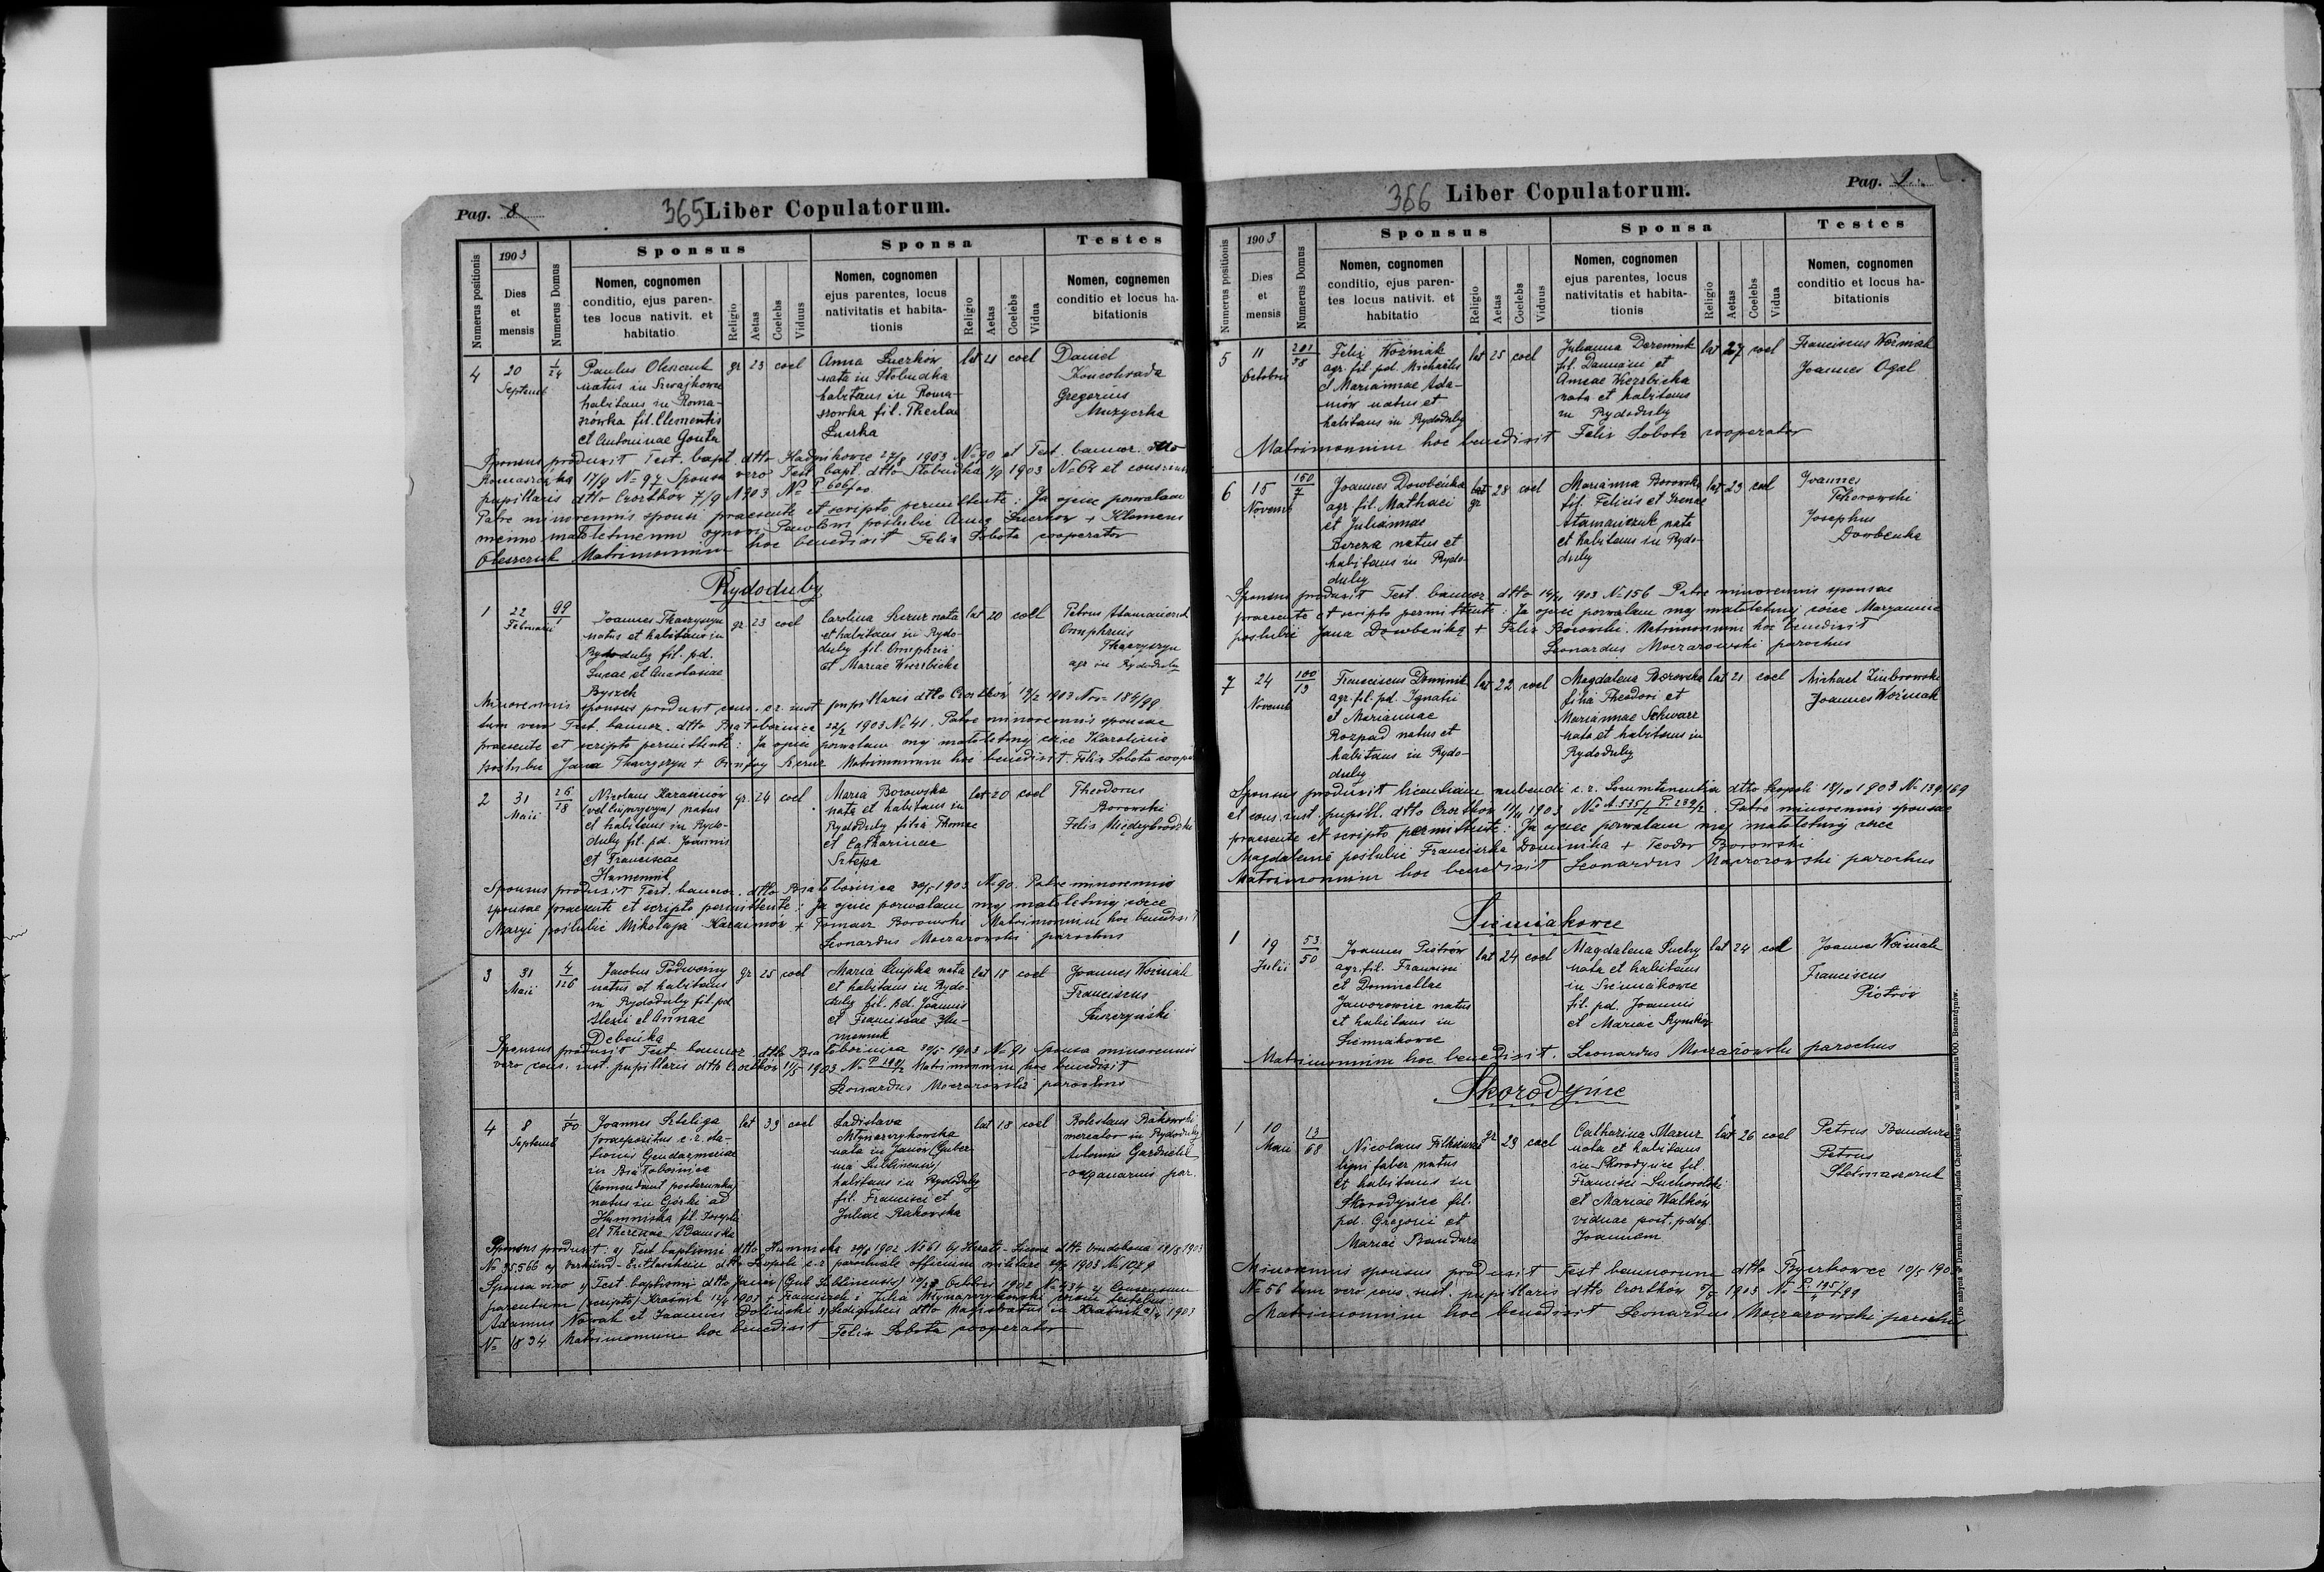 Pag. 8
365 Liber Copulatorum.
Numerus positionis
1903
Dies
et
mensis
Numerus Domus
Sponsus
Nomen, cognomen
conditio, ejus paren-
tes locus nativit. et
habitatio
Religio
Aetas
Coelebs
Viduus
Sponsa
Nomen, cognomen
ejus parentes, locus
nativitatis et habita-
tionis
Religio
Aetas
Coelebs
Vidua
Testes
Nomen, cognemen
conditio et locus ha-
bitationis
4
20
Septemb
1/24
Paulus
natus in
habitans in Roma-
szówka fil. Clementis
et Antoninae
gr 23 coel
Anna
nata in
habitans in Roma-
szówka fil. Theclae
lat 21 coel
Daniel
Gregorius
Muzyczka
Sponsus produxit Test. bapt. dtto 1903 No 90 et Test. bannor. dtto
Romaszówka 17/9 No 97 Sponsa vero Test. bapt. dtto 1903 No 68 et consensum
pupillaris dtto Czortków 7/9 1903 No
Patre minorennis sponsi praesente et scripto permittente: Ja ojciec pozwalam
memu małoletniemu synowi poślubić Annę + Klemens
Oleszczuk Matrimonium hoc benedixit Felix Sobota cooperator
Rydoduby
1
22
Februarii
99/1
Joannes Tkaczyszyn
natus et habitans in
Rydoduby fil. pd.
Lucae et Anastasiae
gr. 23 coel
Carolina nata
et habitans in Rydo-
duby fil. Omphrii
et Mariae Wierzbicka
lat 20 coel
Petrus
Omphrius
Tkaczyszyn
agr in Rydoduby
Minorennis sponsus produxit cons. c.r. iust. pupillaris dtto Czortków 1903 184/99
tum vero Test. bannor. dtto 22/2 1903 No 41. Patre minorennis sponsae
praesente et scripto permittente: Ja ojciec pozwalam mej małoletniej córce Karolinie
poślubić Jana Tkaczyszyn + Matrimonium hoc benedixit Felix Sobota
2
31
Maii
26/18
Nicolaus Karaimów
natus
et habitans in Rydo-
duby fil. pd. Joannis
et Franciscae
Humennik
gr. 24 coel
Maria Borowska
nata et habitans in
Rydoduby filia Thomae
et Catharinae
lat 20 coel
Theodorus
Borowski
Felix
Sponsus produxit Test. bannor. dtto 30/5 1903 No 90. Patre minorennis
sponsae praesente et scripto permittente: Ja ojciec pozwalam mej małoletniej córce
Maryi poślubić Mikołaja Karaimów + Tomasz Borowski Matrimonium hoc benedixit
Leonardus Moczarowski parochus
3
31
Maii
4/126
Jacobus Podworny
natus et habitans
in Rydoduby fil. pd.
Alexii et Annae
gr 25 coel
Maria nata
et habitans in Rydo-
duby fil. pd. Joannis
et Franciscae Hu-
mennik
lat 18 coel
Joannes Woźniak
Franciscus
Sponsus produxit Test. bannor. dtto 30/5 1903 No 91 Sponsa minorennis
vero cons. iust. pupillaris dtto Czortków 11/5 1903 Matrimonium hoc benedixit
Leonardus Moczarowski parochus
4
8
Septemb
1/80
Joannes Szeliga
praepositus c.r. sta-
tionis Gendarmeriae
in
natus in Górki ad
Humniska fil. Josephi
et Theresiae Adamska
lat 33 coel
Ladislava
Młynarzykowska
nata in Janów (Guber-
nia Lublinensis)
habitans in Rydoduby
fil. Francisci et
Juliae Rakowska
lat 18 coel
Boleslaus Rakowski
mercator in Rydoduby
Antonius
organarius par.
Sponsus produxit: a) Test. baptismi dtto Humniska 1902 No 61 1903
No 35566 dtto Leopoli c.r. parochiale officium militare 1903
Sponsa vero Test. baptismi dtto Janów (Gub. Lublinensis) Octobris 1902 Consensum
parentum (scripto) Kraśnik 1903 + Franciszek i Julia Młynarzykowski coram testibus
Adamus Nowak et Joannes dtto Magistratus in Kraśnik 1903
No 1834 Matrimonium hoc benedixit Felix Sobota cooperator
Pag. 9
366 Liber Copulatorum.
Numerus positionis
1903
Dies
et
mensis
Numerus Domus
Sponsus
Nomen, cognomen
conditio, ejus paren-
tes locus nativit. et
habitatio
Religio
Aetas
Coelebs
Viduus
Sponsa
Nomen, cognomen
ejus parentes, locus
nativitatis et habita-
tionis
Religio
Aetas
Coelebs
Vidua
Testes
Nomen, cognomen
conditio et locus ha-
bitationis
5
11
Octobris
201/58
Felix Woźniak
agr. fil. pd. Michaelis
et Mariannae Ada-
mów natus et
habitans in Rydoduby
lat 25 coel
Julianna
fil. Damiani et
Annae Wierzbicka
nata et habitans
in Rydoduby
lat 27 coel
Franciscus Woźniak
Joannes Ogal
Matrimonium hoc benedixit Felix Sobota cooperator
6
15
Novemb
150/7
Joannes Dowbeńka
agr fil. Mathaei
et Juliannae
Bereza natus et
habitans in Rydo-
duby
gr 28 coel
Marianna Borowska
fil. Felicis et Irenae
nata
et habitans in Rydo-
duby
lat 23 coel
Joannes
Josephus
Dowbenka
Sponsus produxit Test. bannor. dtto 14/11 1903 No 156 Patre minorennis sponsae
praesente et scripto permittente: Ja ojciec pozwalam mej małoletniej córce Maryannie
poślubić Jana Dowbeńkę + Felix Borowski. Matrimonium hoc benedixit
Leonardus Moczarowski parochus
7
24
Novemb
100/13
Franciscus Dominik
agr. fil. pd. Ignatii
et Mariannae
Rozpad natus et
habitans in Rydo-
duby
lat 22 coel
Magdalena Borowska
filia Theodori et
Mariannae Schwarz
nata et habitans in
Rydoduby
lat 21 coel
Michael
Joannes Woźniak
Sponsus produxit licentiam nubendi c.r. Locumtenentia dtto Leopoli 18/10 1903 No 139169
et cons. iust. pupill. dtto Czortków 11/11 1903 Patre minorennis sponsae
praesente et scripto permittente: Ja ojciec pozwalam mej małoletniej córce
Magdalenie poślubić Franciszka Dominika + Teodor Borowski
Matrimonium hoc benedixit Leonardus Moczarowski parochus
Siemiakowce
1
19
Julii
53/50
Joannes Piotrów
agr. fil. Francisci
et Domicellae
Jaworowicz natus
et habitans in
Siemiakowce
lat 24 coel
Magdalena Suchy
nata et habitans
in Siemiakowce
fil. pd. Joannis
et Mariae
lat 24 coel
Joannes Woźniak
Franciscus
Piotrów
Matrimonium hoc benedixit. Leonardus Moczarowski parochus
Skorodyńce
1
10
Maii
13/68
Nicolaus
ligni faber natus
et habitans in
Skorodyńce fil.
pd. Gregorii et
Mariae Bandura
gr 23 coel
Catharina Mazur
nata et habitans
in Skorodyńce fil.
Francisci
et Mariae Walków
viduae post. pdef.
Joannem
lat 26 coel
Petrus Bandura
Petrus
Minorennis sponsus produxit Test. bannorum dtto Byczkowce 10/5 190
No 56 tum vero cons. iust. pupillaris dtto Czortków 1903
Matrimonium hoc benedixit Leonardus Moczarowski parochus
Do nabycia w Drukarni Katolickiej Józefa Chęcińskiego — w zabudowaniu OO. Bernardynów.